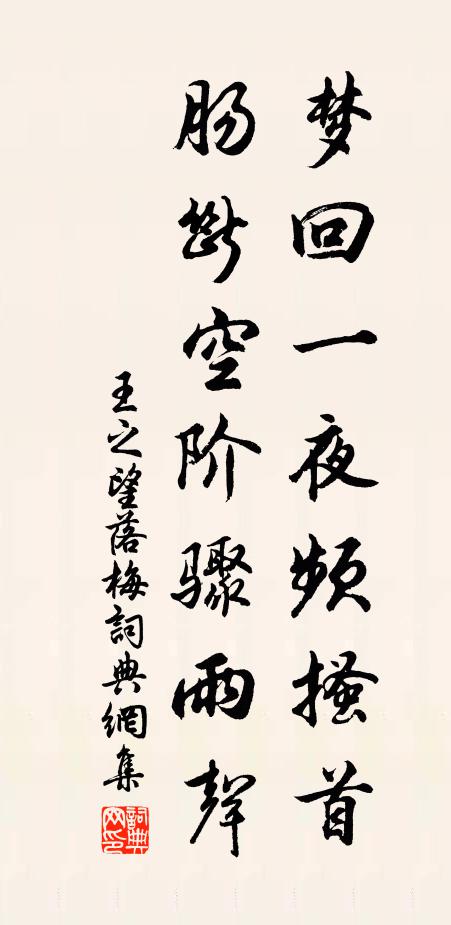 梦回一夜频搔首
肠断空阶骤雨声
王之望落梅詞典網集
詞典网印